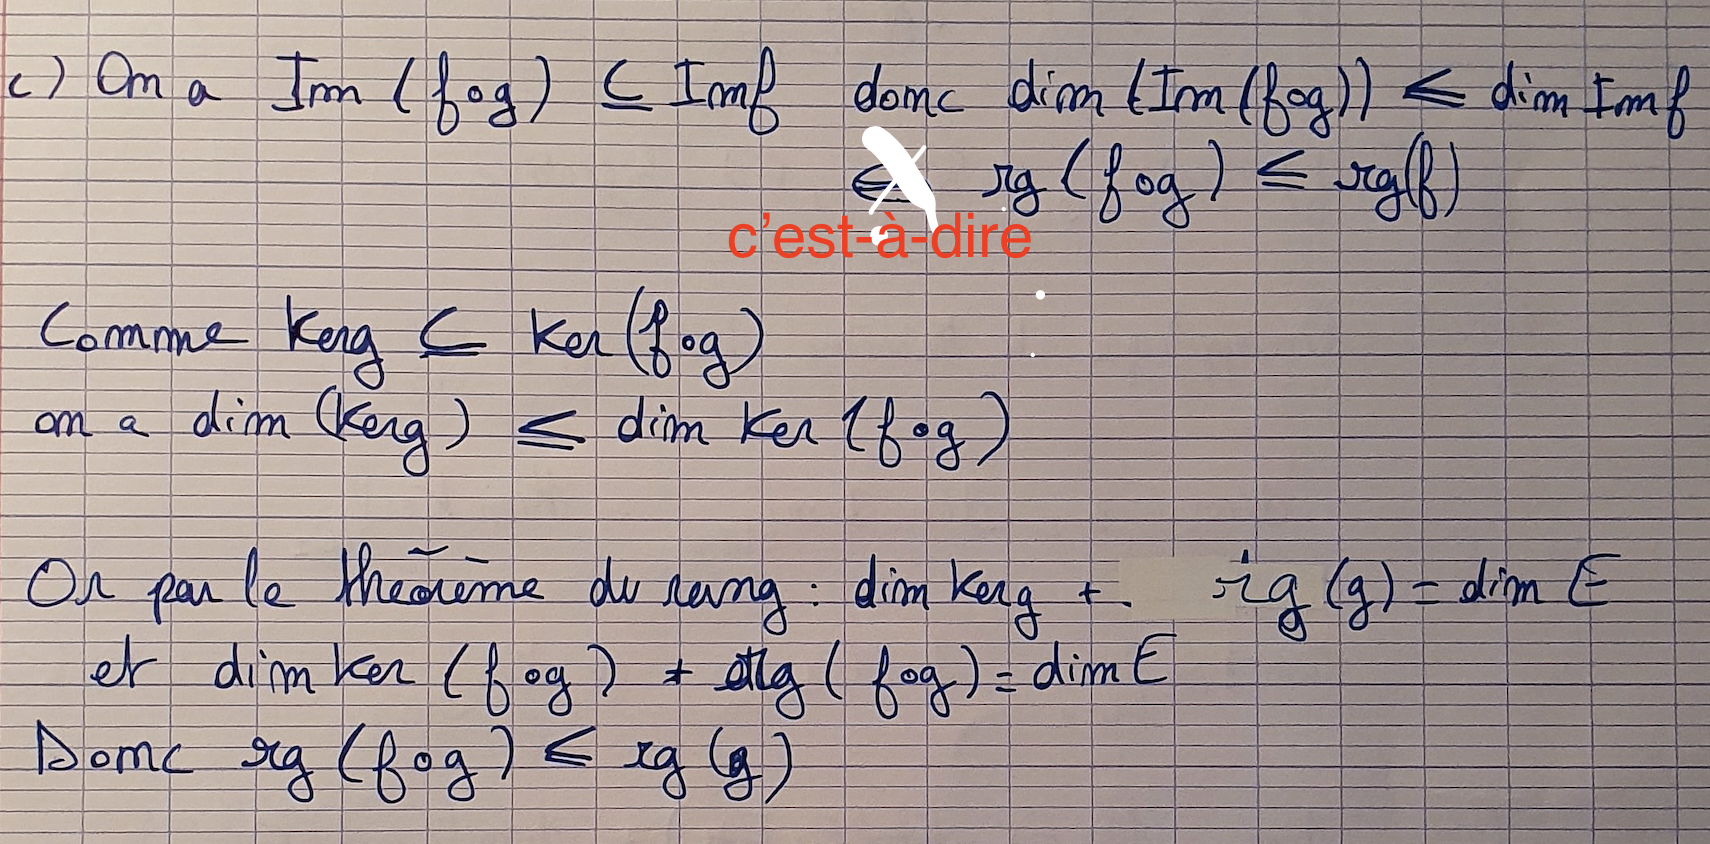 c) On a Im (fog) ⊆ Imf donc dim (Im (fog)) ≤ dim Imf
rg (fog) ≤ rg(f)
c'est-à-dire
Comme Kerg ⊆ Ker (fog)
on a dim (Kerg) ≤ dim Ker (fog)
Or par le théorème du rang : dim Kerg + rg (g) = dim E
et dim Ker (fog) + rg (fog) = dim E
Donc rg (fog) ≤ rg (g)